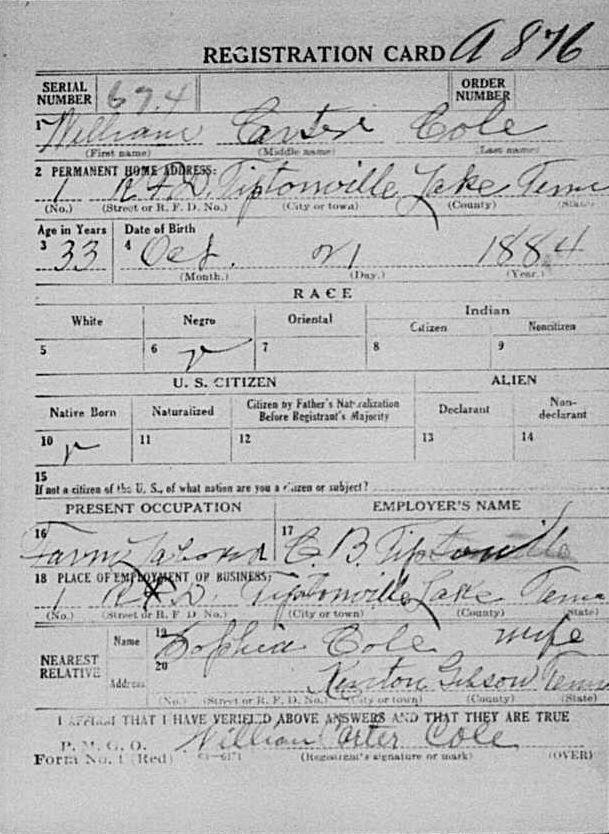 REGISTRATION CARD A 876
SERIAL NUMBER 674 ORDER NUMBER
1 William Carter Cole
(First name) (Middle name) (Last name)
2 PERMANENT HOME ADDRESS:
1 R F D. Tiptonville Lake Tenn
(No.) (Street or R. F. D. No.) (City or town) (County) (State)
Age in Years Date of Birth
3 33 4 Oct. 21 1884
(Month.) (Day.) (Year.)
RACE
White Negro Oriental Indian
Citizen Noncitizen
5 6 7 8 9
U. S. CITIZEN ALIEN
Native Born Naturalized Citizen by Father's Naturalization Before Registrant's Majority Declarant Non-declarant
10 11 12 13 14
15
If not a citizen of the U. S., of what nation are you a citizen or subject?
PRESENT OCCUPATION EMPLOYER'S NAME
16 Farm 17 C. B. Tiptonville
18 PLACE OF EMPLOYMENT OR BUSINESS:
1 R F D. Tiptonville Lake Tenn
(No.) (Street or R. F. D. No.) (City or town) (County) (State)
NEAREST RELATIVE
Name 19 Sophia Cole wife
Address 20 Kenton Gibson Tenn
(No.) (Street or R. F. D. No.) (City or town) (County) (State)
I AFFIRM THAT I HAVE VERIFIED ABOVE ANSWERS AND THAT THEY ARE TRUE
P. M. G. O. William Carter Cole
Form No. 1 (Red) (Registrant's signature or mark) (OVER)